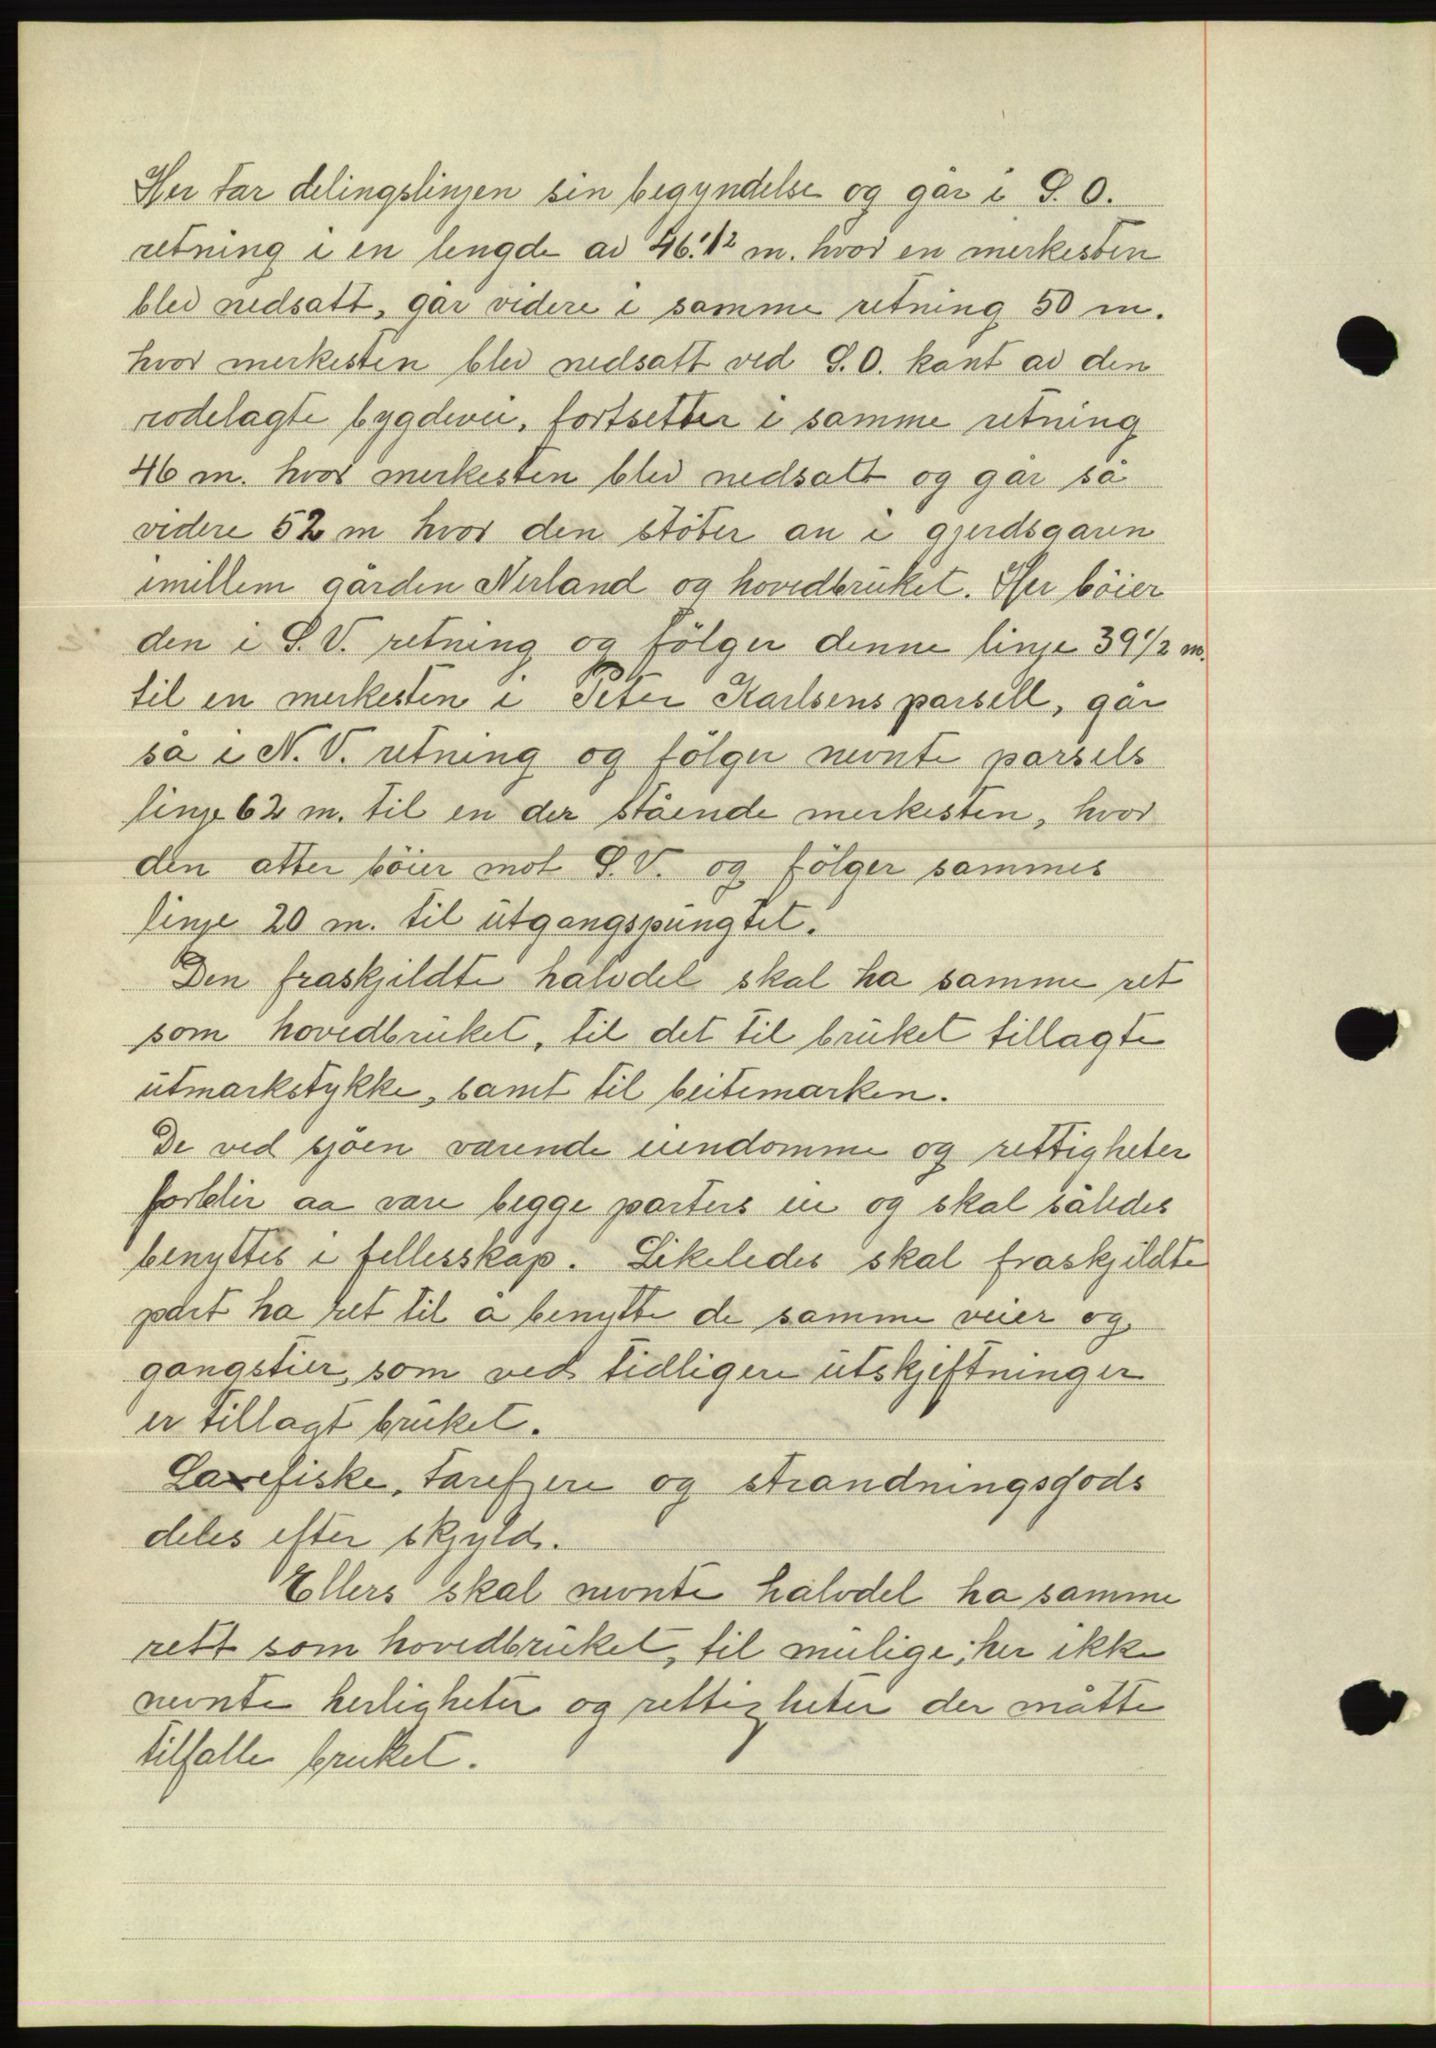 Her tar delingslinjen sin begyndelse og går i S.O.
retning i en lengde av 46.1/2 m. hvor en merkesten
blev nedsatt, går videre i samme retning 50 m.
hvor merkesten blev nedsatt ved S.O. kant av den
rodelagte bygdevei, fortsetter i samme retning
46 m. hvor merkesten blev nedsatt og går så
videre 52 m hvor den støter an i gjerdsgaren
imillem gården Nerland og hovedbruket. Her bøier
den i S.V. retning og følger denne linje 39 1/2 m.
til en merkesten i Peter Karlsens parsell, går
så i N.V. retning og følger nevnte parsels
linje 62 m. til en der stående merkesten, hvor
den atter bøier mot S.V. og følger sammes
linje 20 m. til utgangspungtet.
Den fraskjildte halvdel skal ha samme ret
som hovedbruket, til det til bruket tillagte
utmarkstykke, samt til beitemarken.
De ved sjøen værende eiendomme og rettigheter
forblir aa være begge parters eie og skal således
benyttes i fellesskap. Likeledes skal fraskjildte
part ha ret til å benytte de samme veier og
gangstier, som ved tidligere utskjiftninger
er tillagt bruket.
Laxefiske, tarefjere og strandningsgods
deles efter skjyld.
Ellers skal nevnte halvdel ha samme
rett som hovedbruket, til mulige, her ikke
nevnte herligheter og rettigheter der måtte
tilfalle bruket.